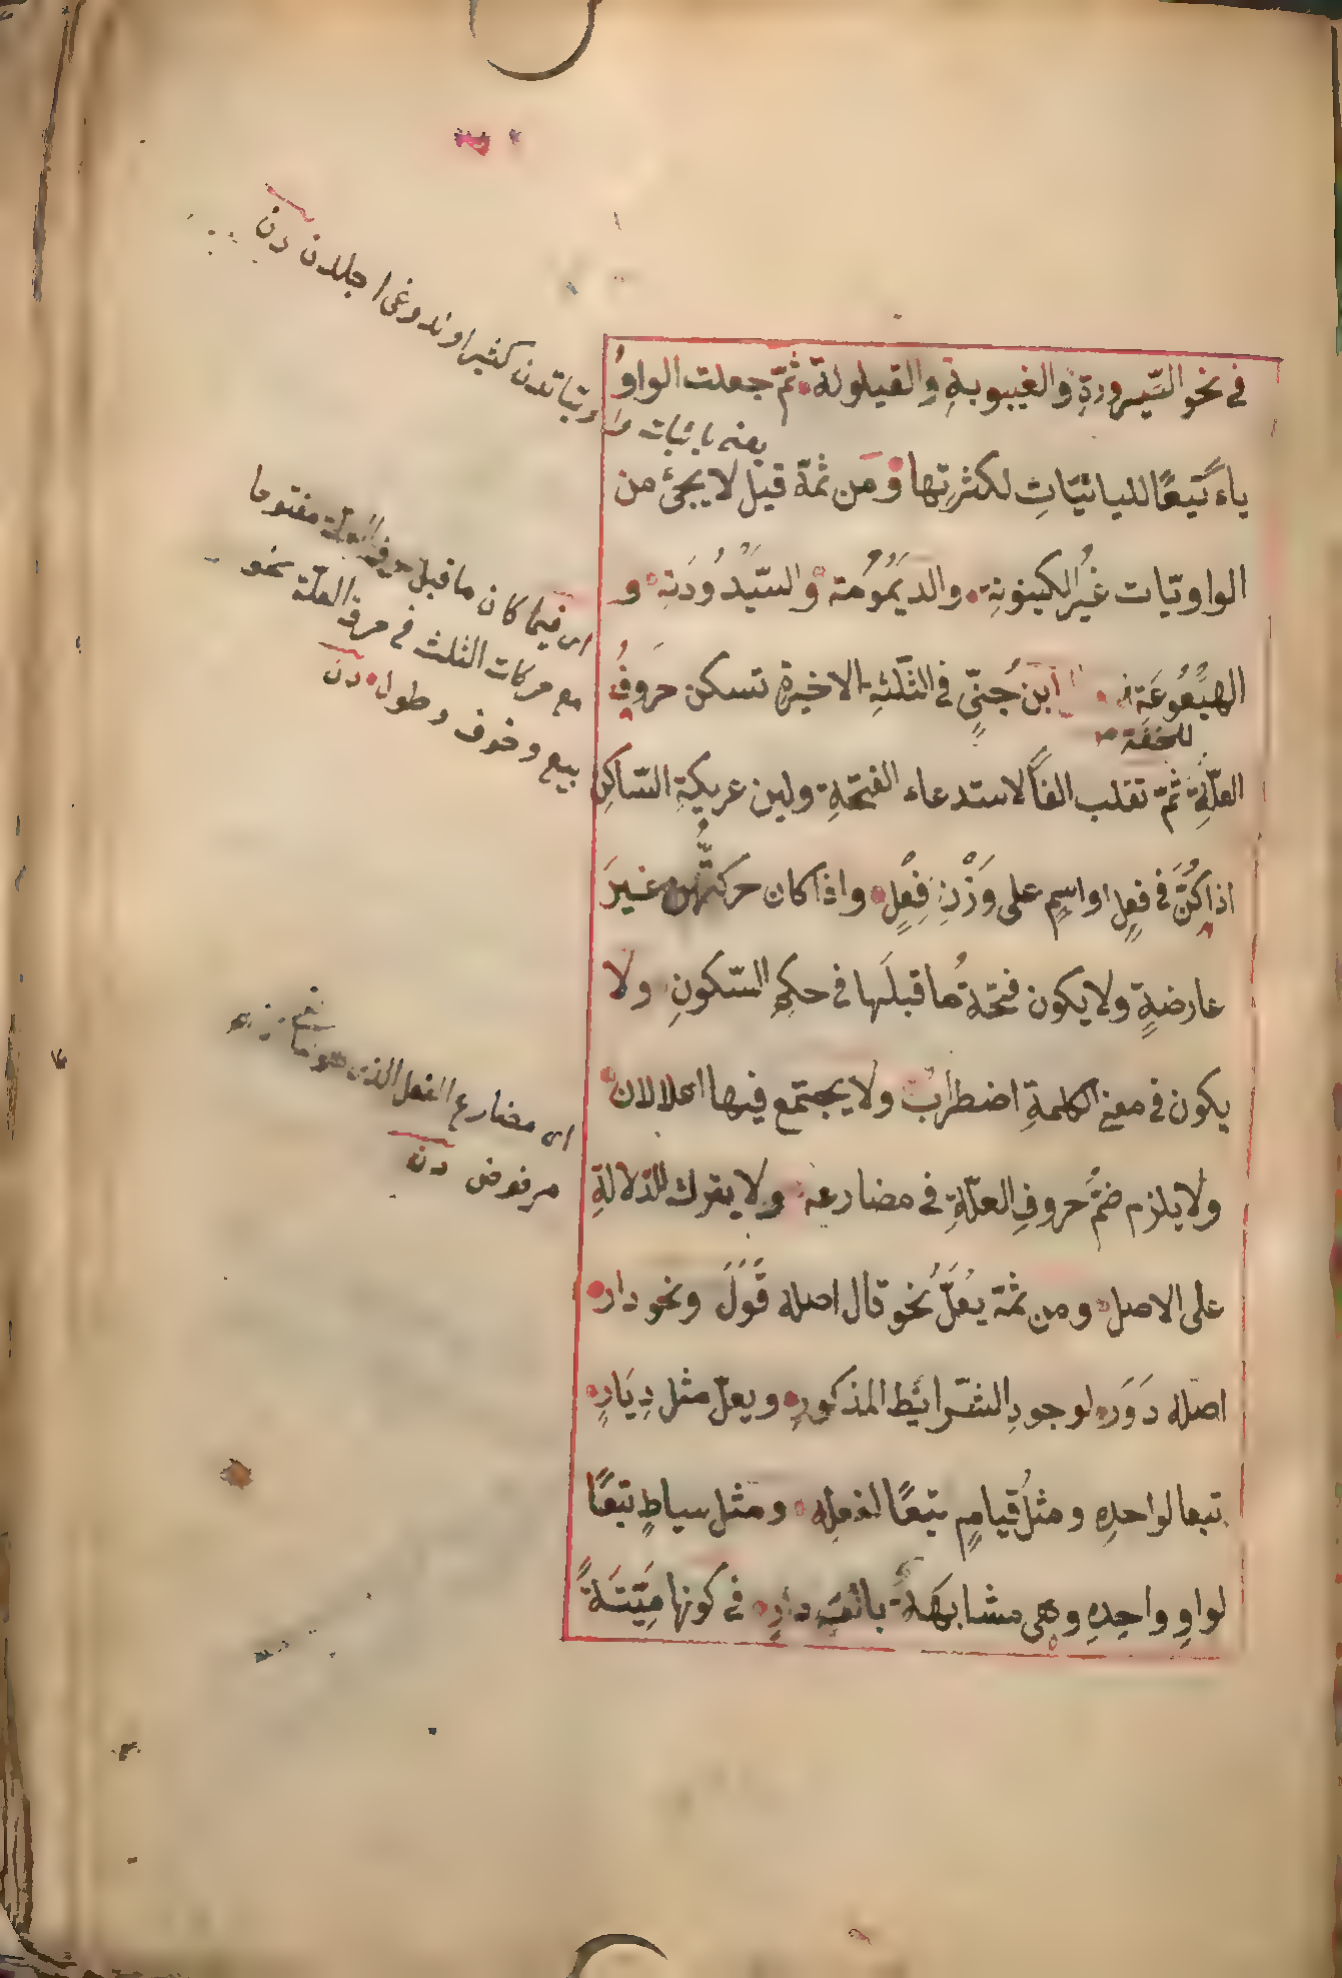 في نحو السَّيرورةِ والغيبوبةِ والقيلولة ثمّ جعلت الواوُ
ياءً تَبعًا لليائيّاتِ لكثرتِها ومَن ثمّة قيل لا يجئ من
الواويّات غيرُ الكينونةِ والديمُومُة والسَّيْدُودَةِ و
الهيْعُوعَةِ ابن جُنّيٍّ في الثلثةِ الاخيرة تسكن حروفُ
للخفة
العلّةِ ثمّ تقلب الفاً لاستدعاء الفتحةِ ولين عريكةِ السّاكن
اذا كُنَّ في فعلٍ او اسمٍ على وَزْنِ فِعْلٍ واذا كان حركتُهن غيرَ
عارضةٍ ولا يكون فتحةُ ما قبلَها في حكمِ السّكونِ ولا
يكون في معنى الكلمةِ اضطرابٌ ولا يجتمع فيها اعلالان
ولا يلزم ضمُّ حروفِ العلّةِ في مضارعه ولا يترك للدّلالةِ
على الاصل ومن ثمّة يُعَلُّ نحو قال اصله قَوَلَ ونحو دار
اصله دَوَر لوجودِ الشّرائيطِ المذكورِ ويعلّ مثل دِيَارٍ
تبعا لواحدِه ومثلُ قيامٍ تبعًا لفعلِه ومثل سياطٍ تبعًا
لواوِ واحِدِهِ وهى مشابهَةٌ بالف دارٍ في كونها مَيّتَةً
يعنه يائيات واويّاتدن كثير اوندوغى اجلدن دن
اى فيما كان ما قبل مفتوحا
مع حركات الثلث في حرف العلّة نحو
بيع وخوف وطول دن
اى مضارع الفعل الذى
مرفوض دن